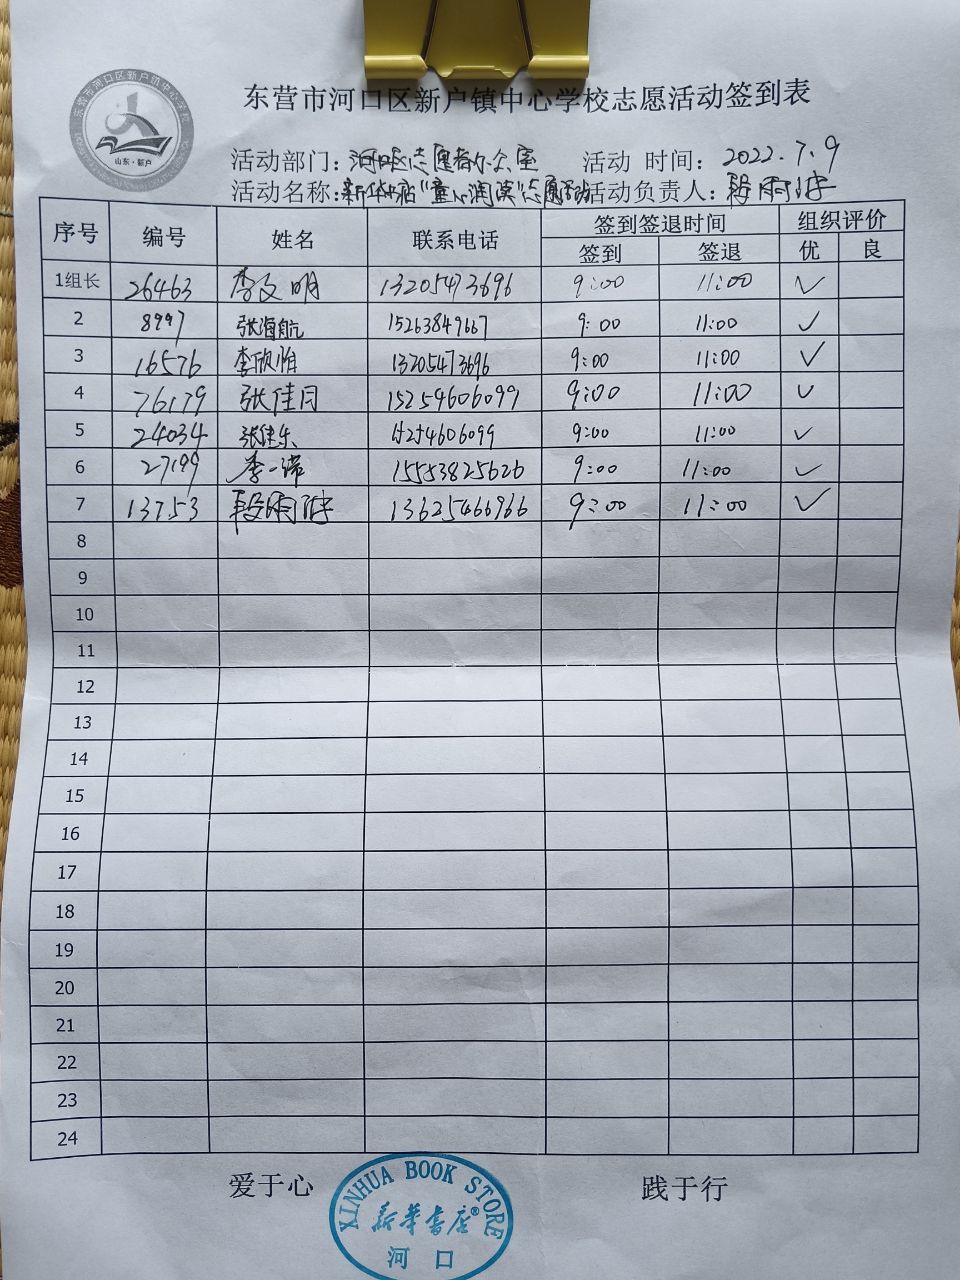 东营市河口区新户镇中心学校志愿活动签到表
山东·新户
活动部门：河口区志愿者办公室 活动 时间：2022.7.9
活动名称：新华书店"童心阅读"志愿活动 活动负责人：段雨
序号 编号 姓名 联系电话 签到签退时间 组织评价
签到 签退 优 良
1组长 26463 李文明 13205473696 9:00 11:00 ✓
2 8997 张海航 15263849667 9:00 11:00 ✓
3 16576 李欣怡 13205473696 9:00 11:00 ✓
4 76179 张佳月 15254606099 9:00 11:00 ✓
5 24034 张佳乐 15254606099 9:00 11:00 ✓
6 27199 李一诺 15553825626 9:00 11:00 ✓
7 13753 段雨 13625466966 9:00 11:00 ✓
8
9
10
11
12
13
14
15
16
17
18
19
20
21
22
23
24
爱于心 践于行
XINHUA BOOK STORE
新华书店®
河口